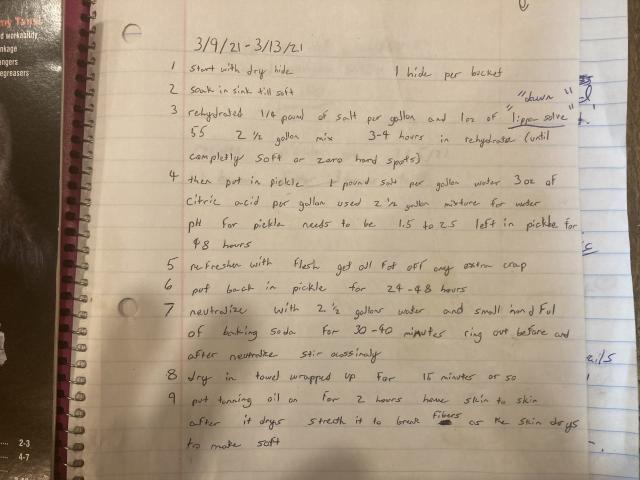 my Tan
workability
nkage
angers
egreasers
3/9/21 - 3/13/21
1 start with dry hide 1 hide per bucket
2 soak in sink till soft
"dawn"
3 rehydrated 1/4 pound of salt per gallon and 1oz of lippen solve
55 2 1/2 gallon mix 3-4 hours in rehydrate (until
completly soft or zero hard spots)
4 then put in pickle 1 pound salt per gallon water 3 oz of
Citric acid per gallon used 2 1/2 gallon mixture for water
pH for pickle needs to be 1.5 to 2.5 left in pickle for
48 hours
5 reflesher with flesh get all fat off any extra crap
6 put back in pickle for 24-48 hours
7 neutralize with 2 1/2 gallons water and small hand ful
of baking soda for 30-40 minutes ring out before and
after neutralize stir acossinaly
8 dry in towel wrapped up for 15 minutes or so
9 put tanning oil on for 2 hours have skin to skin
after it drys stretch it to break fibers as the skin drys
to make soft
ails
2-3
4-7